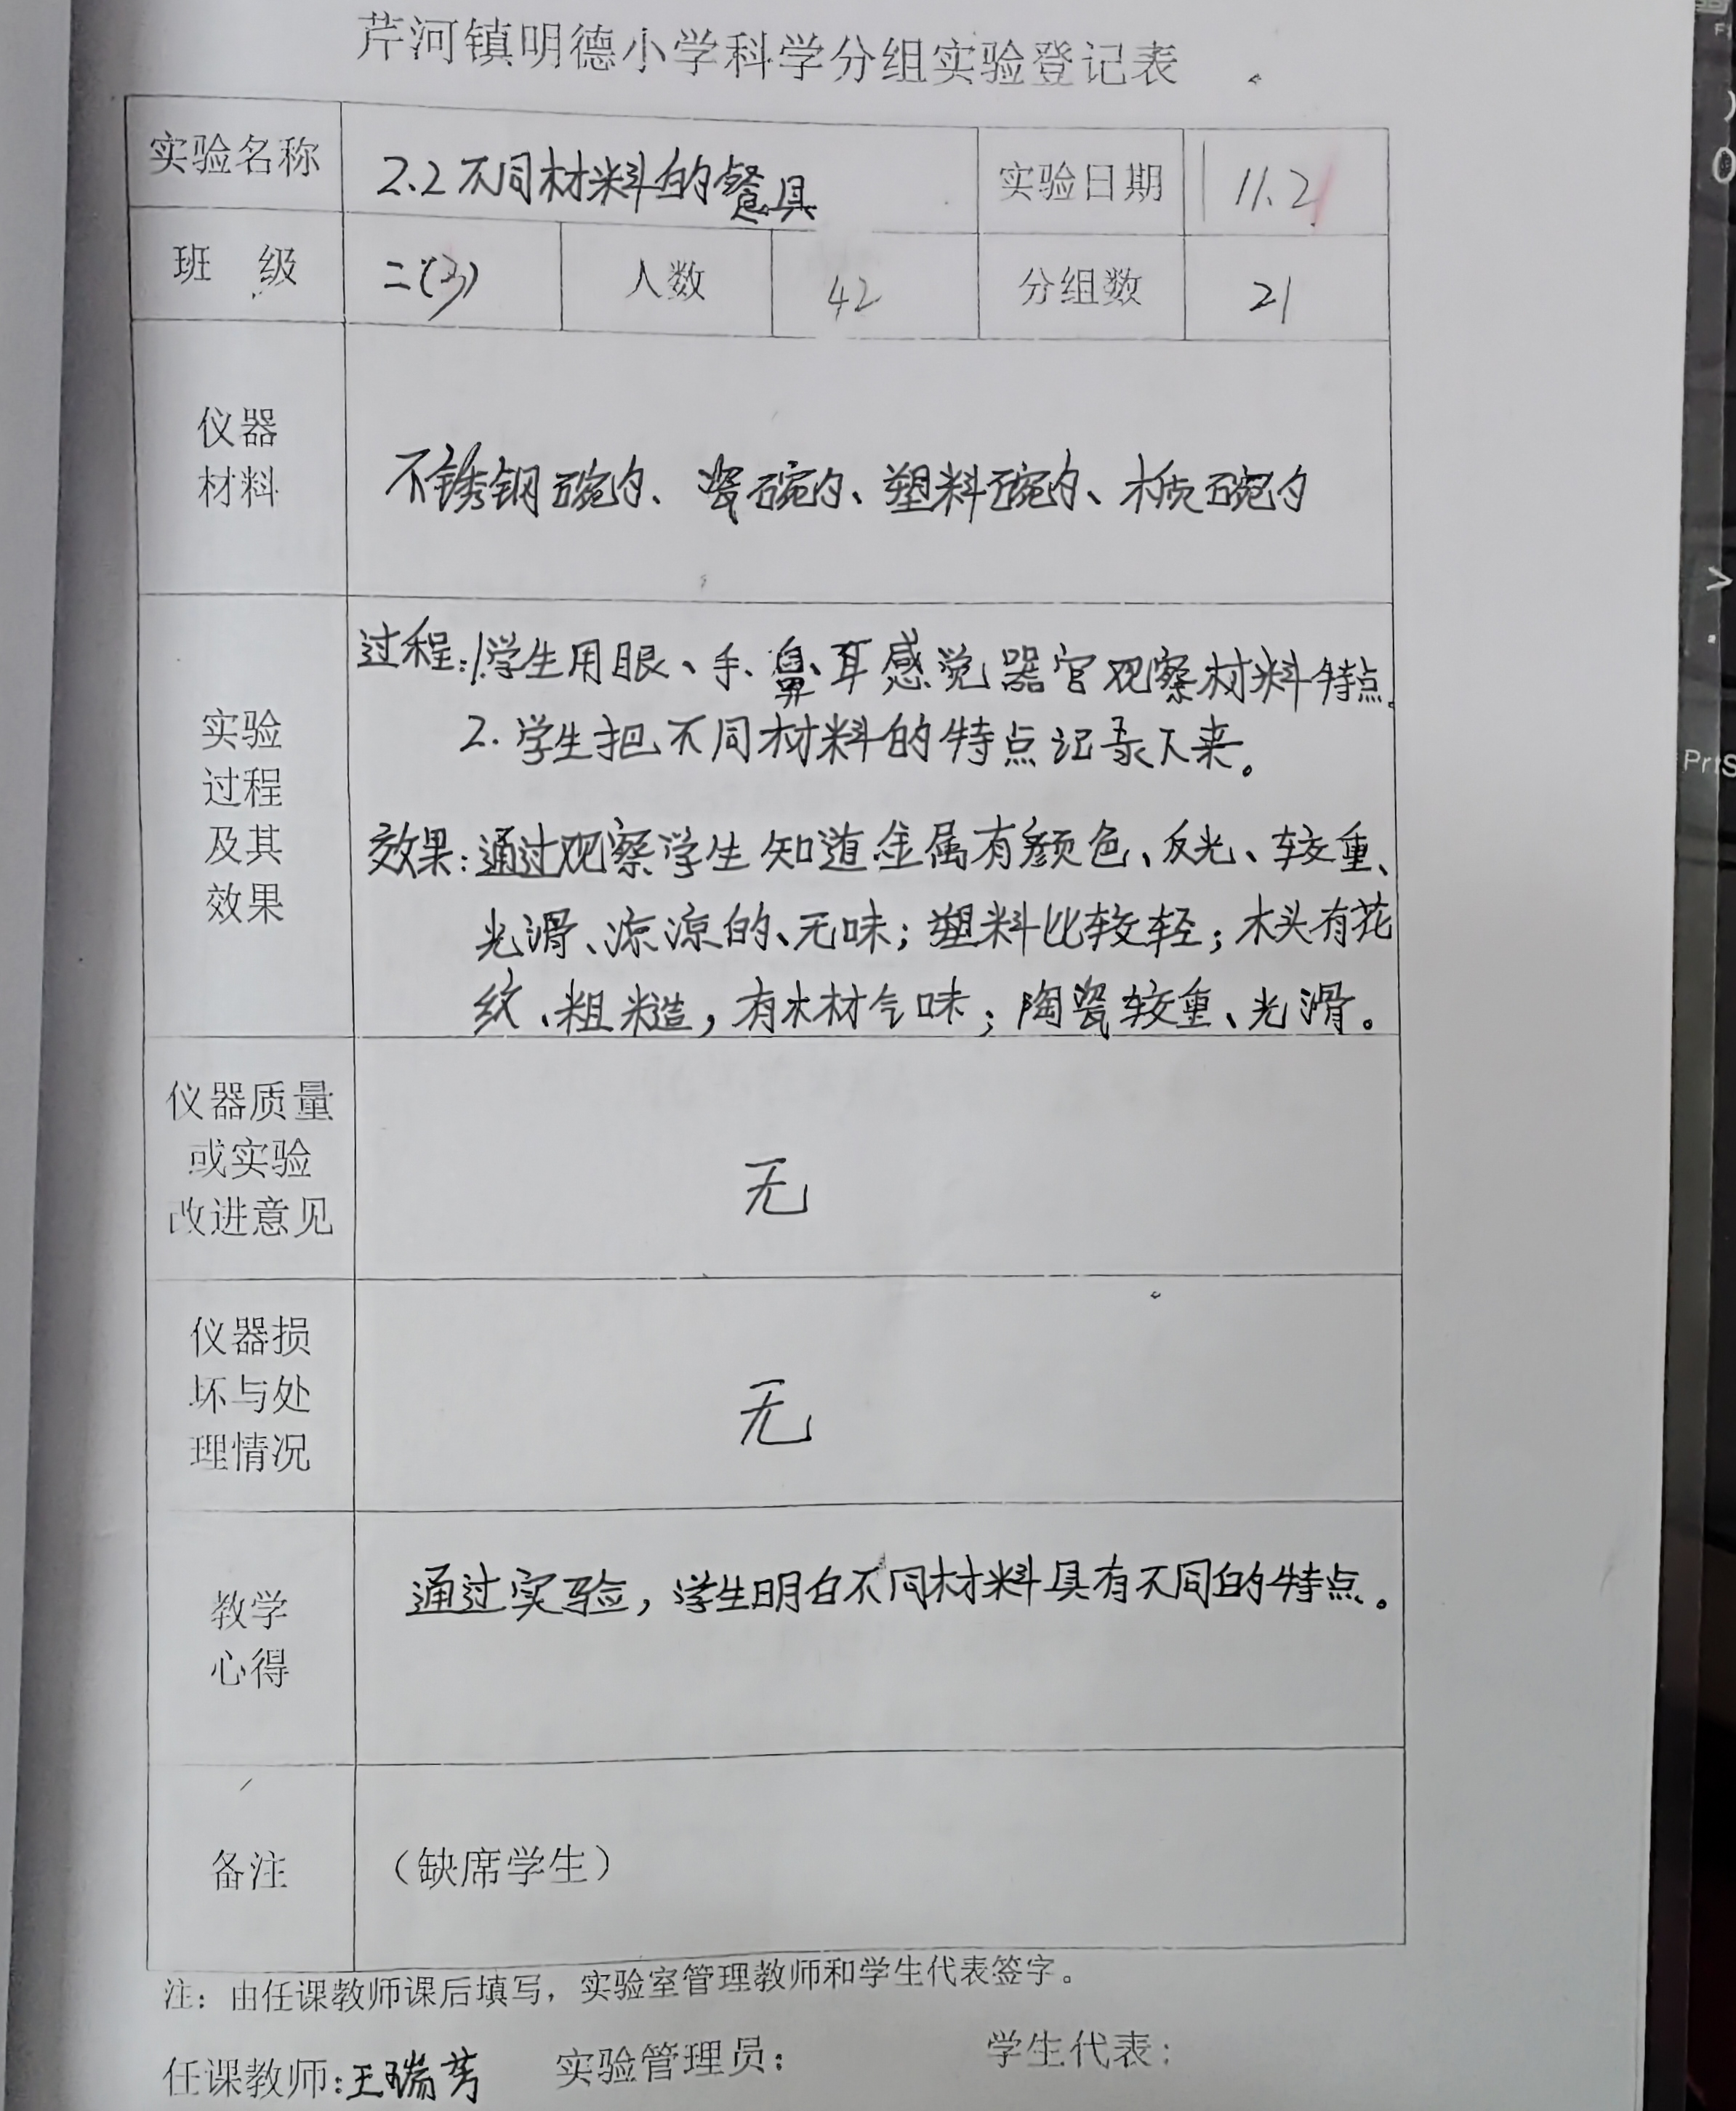 芹河镇明德小学科学分组实验登记表
实验名称 2.2不同材料的餐具 实验日期 11.2
班 级 二(3) 人数 42 分组数 21
仪器
材料
不锈钢碗勺、瓷碗勺、塑料碗勺、木质碗勺
实验
过程
及其
效果
过程:1.学生用眼、手、鼻、耳感觉器官观察材料特点。
2.学生把不同材料的特点记录下来。
效果:通过观察学生知道金属有颜色、反光、较重、
光滑、凉凉的、无味;塑料比较轻;木头有花
纹、粗糙,有木材气味;陶瓷较重、光滑。
仪器质量
或实验
改进意见
无
仪器损
坏与处
理情况
无
教学
心得
通过实验,学生明白不同材料具有不同的特点。
备注 (缺席学生)
注:由任课教师课后填写,实验室管理教师和学生代表签字。
任课教师:王瑞芳 实验管理员: 学生代表:
PrtS